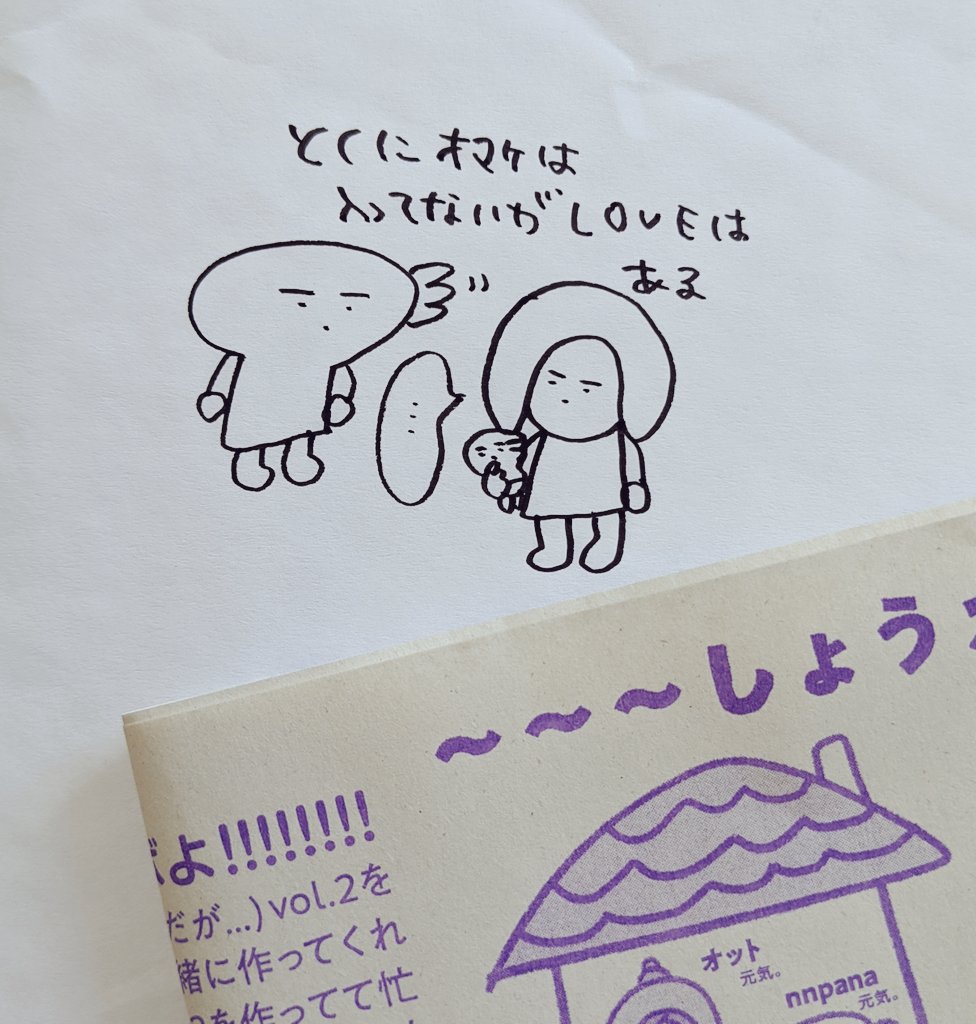 とくにオマケは
入ってないがLOVEは
ある
…
～～～しょうか
よ!!!!!!!!
だが…)vol.2を
緒に作ってくれ
を作ってて忙
オット
元気。
nnpana
元気。